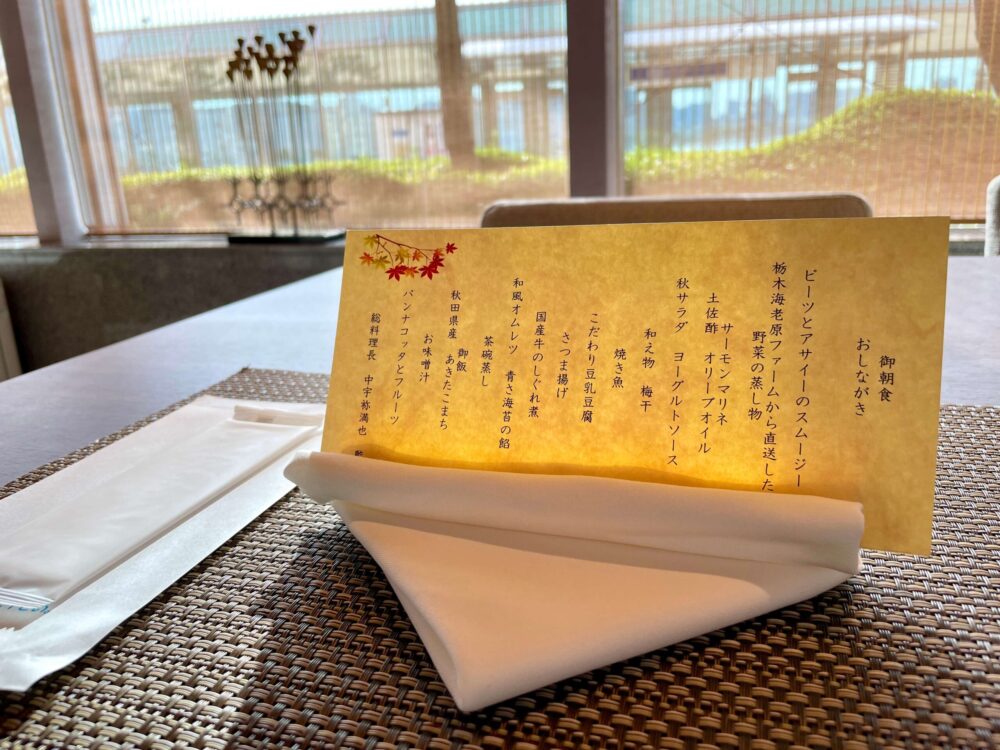 御朝食
おしながき
ビーツとアサイーのスムージー
栃木海老原ファームから直送した
野菜の蒸し物
サーモンマリネ
土佐酢 オリーブオイル
秋サラダ ヨーグルトソース
和え物 梅干
焼き魚
こだわり豆乳豆腐
さつま揚げ
国産牛のしぐれ煮
和風オムレツ 青さ海苔の餡
茶碗蒸し
御飯
秋田県産 あきたこまち
お味噌汁
パンナコッタとフルーツ
総料理長 中宇祢満也